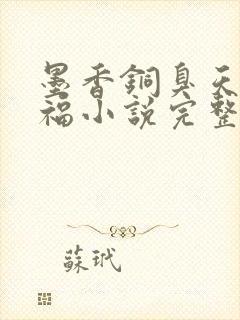 墨香銅臭天
福小說完整
蘇玳